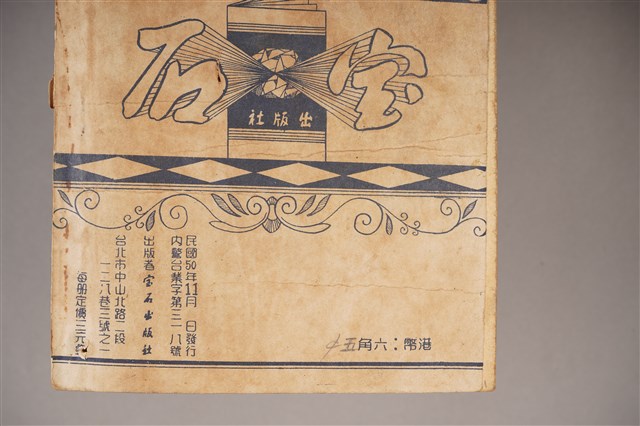 宝石
出版社
民國50年11月 日發行
內警台業字第三一八號
出版者 宝石出版社
台北市中山北路二段
一二八巷三號之一
每冊定價三元
港幣:六角五